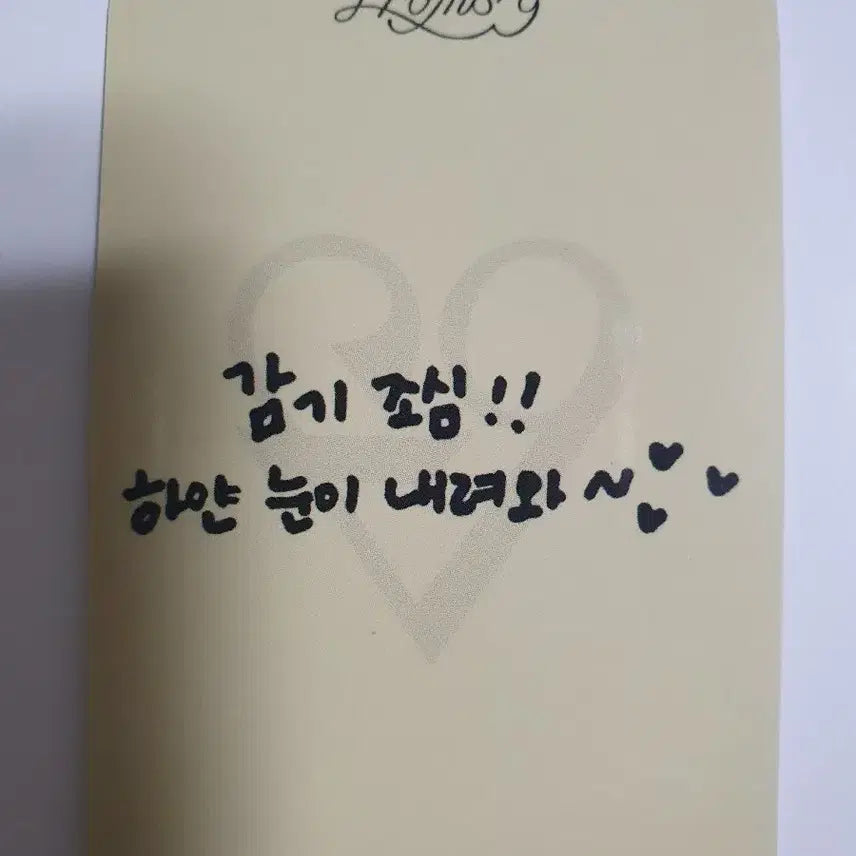 감기 조심!!
하얀 눈이 내려와~